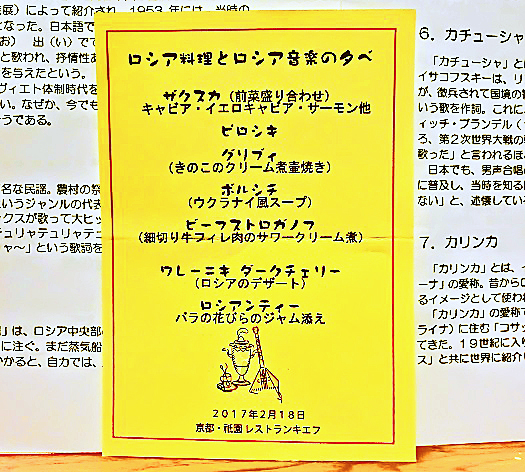 展）によって紹介され、1953 年には、当時の
となった。日本語で
お） 出（い）でて
と歌われ、抒情性あ
を与えたという。
ヴィエト体制時代を
い。なぜか、今でも
うである。
名な民謡。農村の祭
いうジャンルの代表
ックスが歌って大ヒッ
チュリャテュリャテュ
ャ～」という歌詞を
」は、ロシア中央部の
に注ぐ。まだ蒸気船
かかると、自力では、
ロシア料理とロシア音楽の夕べ
ザクスカ（前菜盛り合わせ）
キャビア・イエロキャビア・サーモン他
ピロシキ
グリブィ
（きのこのクリーム煮壷焼き）
ボルシチ
（ウクラナイ風スープ）
ビーフストロガノフ
（細切り牛フィレ肉のサワークリーム煮）
ワレーニキ ダークチェリー
（ロシアのデザート）
ロシアンティー
バラの花びらのジャム添え
2017年2月18日
京都・祇園 レストランキエフ
6．カチューシャ
「カチューシャ」とは
イサコフスキーは、リ
が、徴兵されて国境の
いう歌を作詞。これに、
ィッチ・ブランデル（
ろ、第2次世界大戦の
歌った」と言われるほ
日本でも、男声合唱
に普及し、当時を知る
ない」と、述懐している
7．カリンカ
「カリンカ」とは、イ
ーナ」の愛称。昔から
るイメージとして使わ
「カリンカ」の愛称で
ライナ）に住む「コサッ
てきた。19世紀に入り
ス」と共に世界に紹介